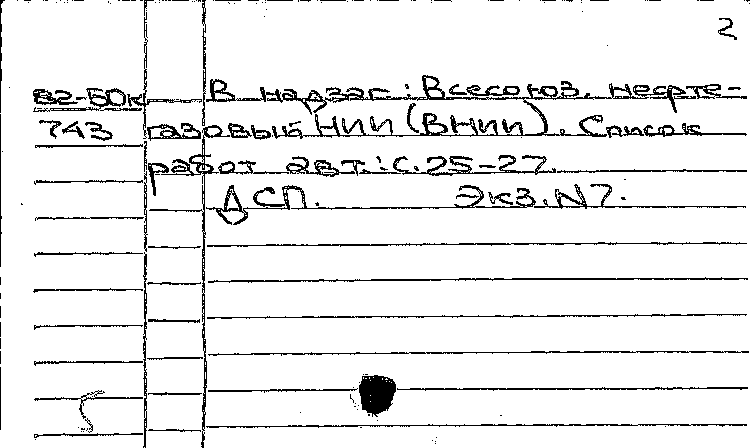 2
82-50к В надзаг: Всесоюз. нефте-
743 газовый НИИ (ВНИИ). Список
работ авт.: с. 25-27.
ДСП. Экз. N7.